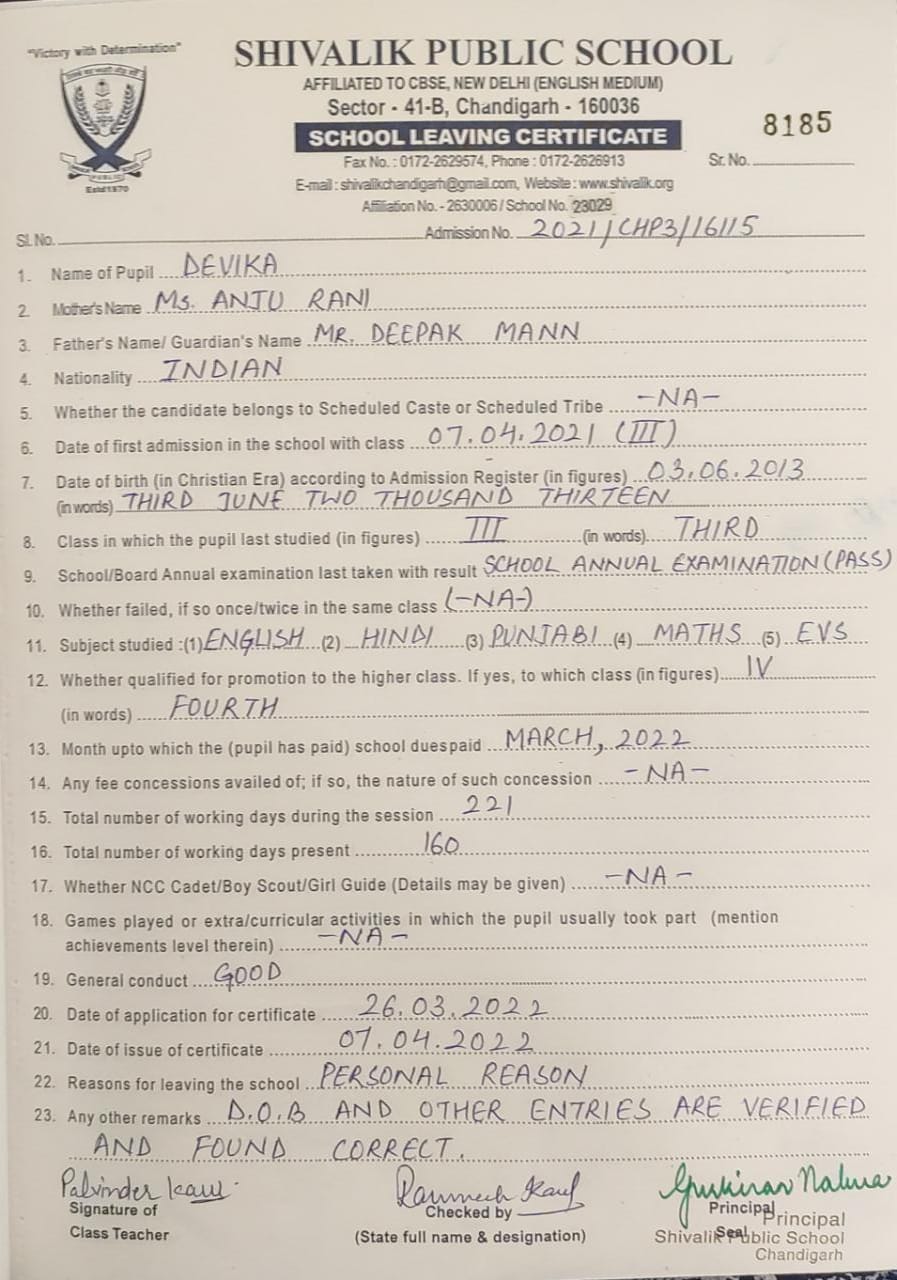 "Victory with Determination"
SHIVALIK PUBLIC SCHOOL
AFFILIATED TO CBSE, NEW DELHI (ENGLISH MEDIUM)
Sector - 41-B, Chandigarh - 160036
SCHOOL LEAVING CERTIFICATE
8185
Fax No. : 0172-2629574, Phone : 0172-2626913
Sr. No.
E-mail : shivalikchandigarh@gmail.com, Website : www.shivalik.org
Estd1970
Affiliation No. - 2630006 / School No. 23029
Sl. No. Admission No. 2021/CHP3/16115
1. Name of Pupil DEVIKA
2. Mother's Name Ms. ANJU RANI
3. Father's Name/ Guardian's Name MR. DEEPAK MANN
4. Nationality INDIAN
5. Whether the candidate belongs to Scheduled Caste or Scheduled Tribe -NA-
6. Date of first admission in the school with class 07.04.2021 (III)
7. Date of birth (in Christian Era) according to Admission Register (in figures) 03.06.2013
(in words) THIRD JUNE TWO THOUSAND THIRTEEN
8. Class in which the pupil last studied (in figures) III (in words) THIRD
9. School/Board Annual examination last taken with result SCHOOL ANNUAL EXAMINATION (PASS)
10. Whether failed, if so once/twice in the same class (-NA-)
11. Subject studied :(1) ENGLISH (2) HINDI (3) PUNJABI (4) MATHS (5) EVS
12. Whether qualified for promotion to the higher class. If yes, to which class (in figures) IV
(in words) FOURTH
13. Month upto which the (pupil has paid) school duespaid MARCH, 2022
14. Any fee concessions availed of; if so, the nature of such concession -NA-
15. Total number of working days during the session 221
16. Total number of working days present 160
17. Whether NCC Cadet/Boy Scout/Girl Guide (Details may be given) -NA-
18. Games played or extra/curricular activities in which the pupil usually took part (mention
achievements level therein) -NA-
19. General conduct GOOD
20. Date of application for certificate 26.03.2022
21. Date of issue of certificate 07.04.2022
22. Reasons for leaving the school PERSONAL REASON
23. Any other remarks D.O.B AND OTHER ENTRIES ARE VERIFIED
AND FOUND CORRECT.
Palvinder Kaur Kaur
Signature of Checked by Principal
Class Teacher (State full name & designation) Seal
Principal
Shivalik Public School
Chandigarh